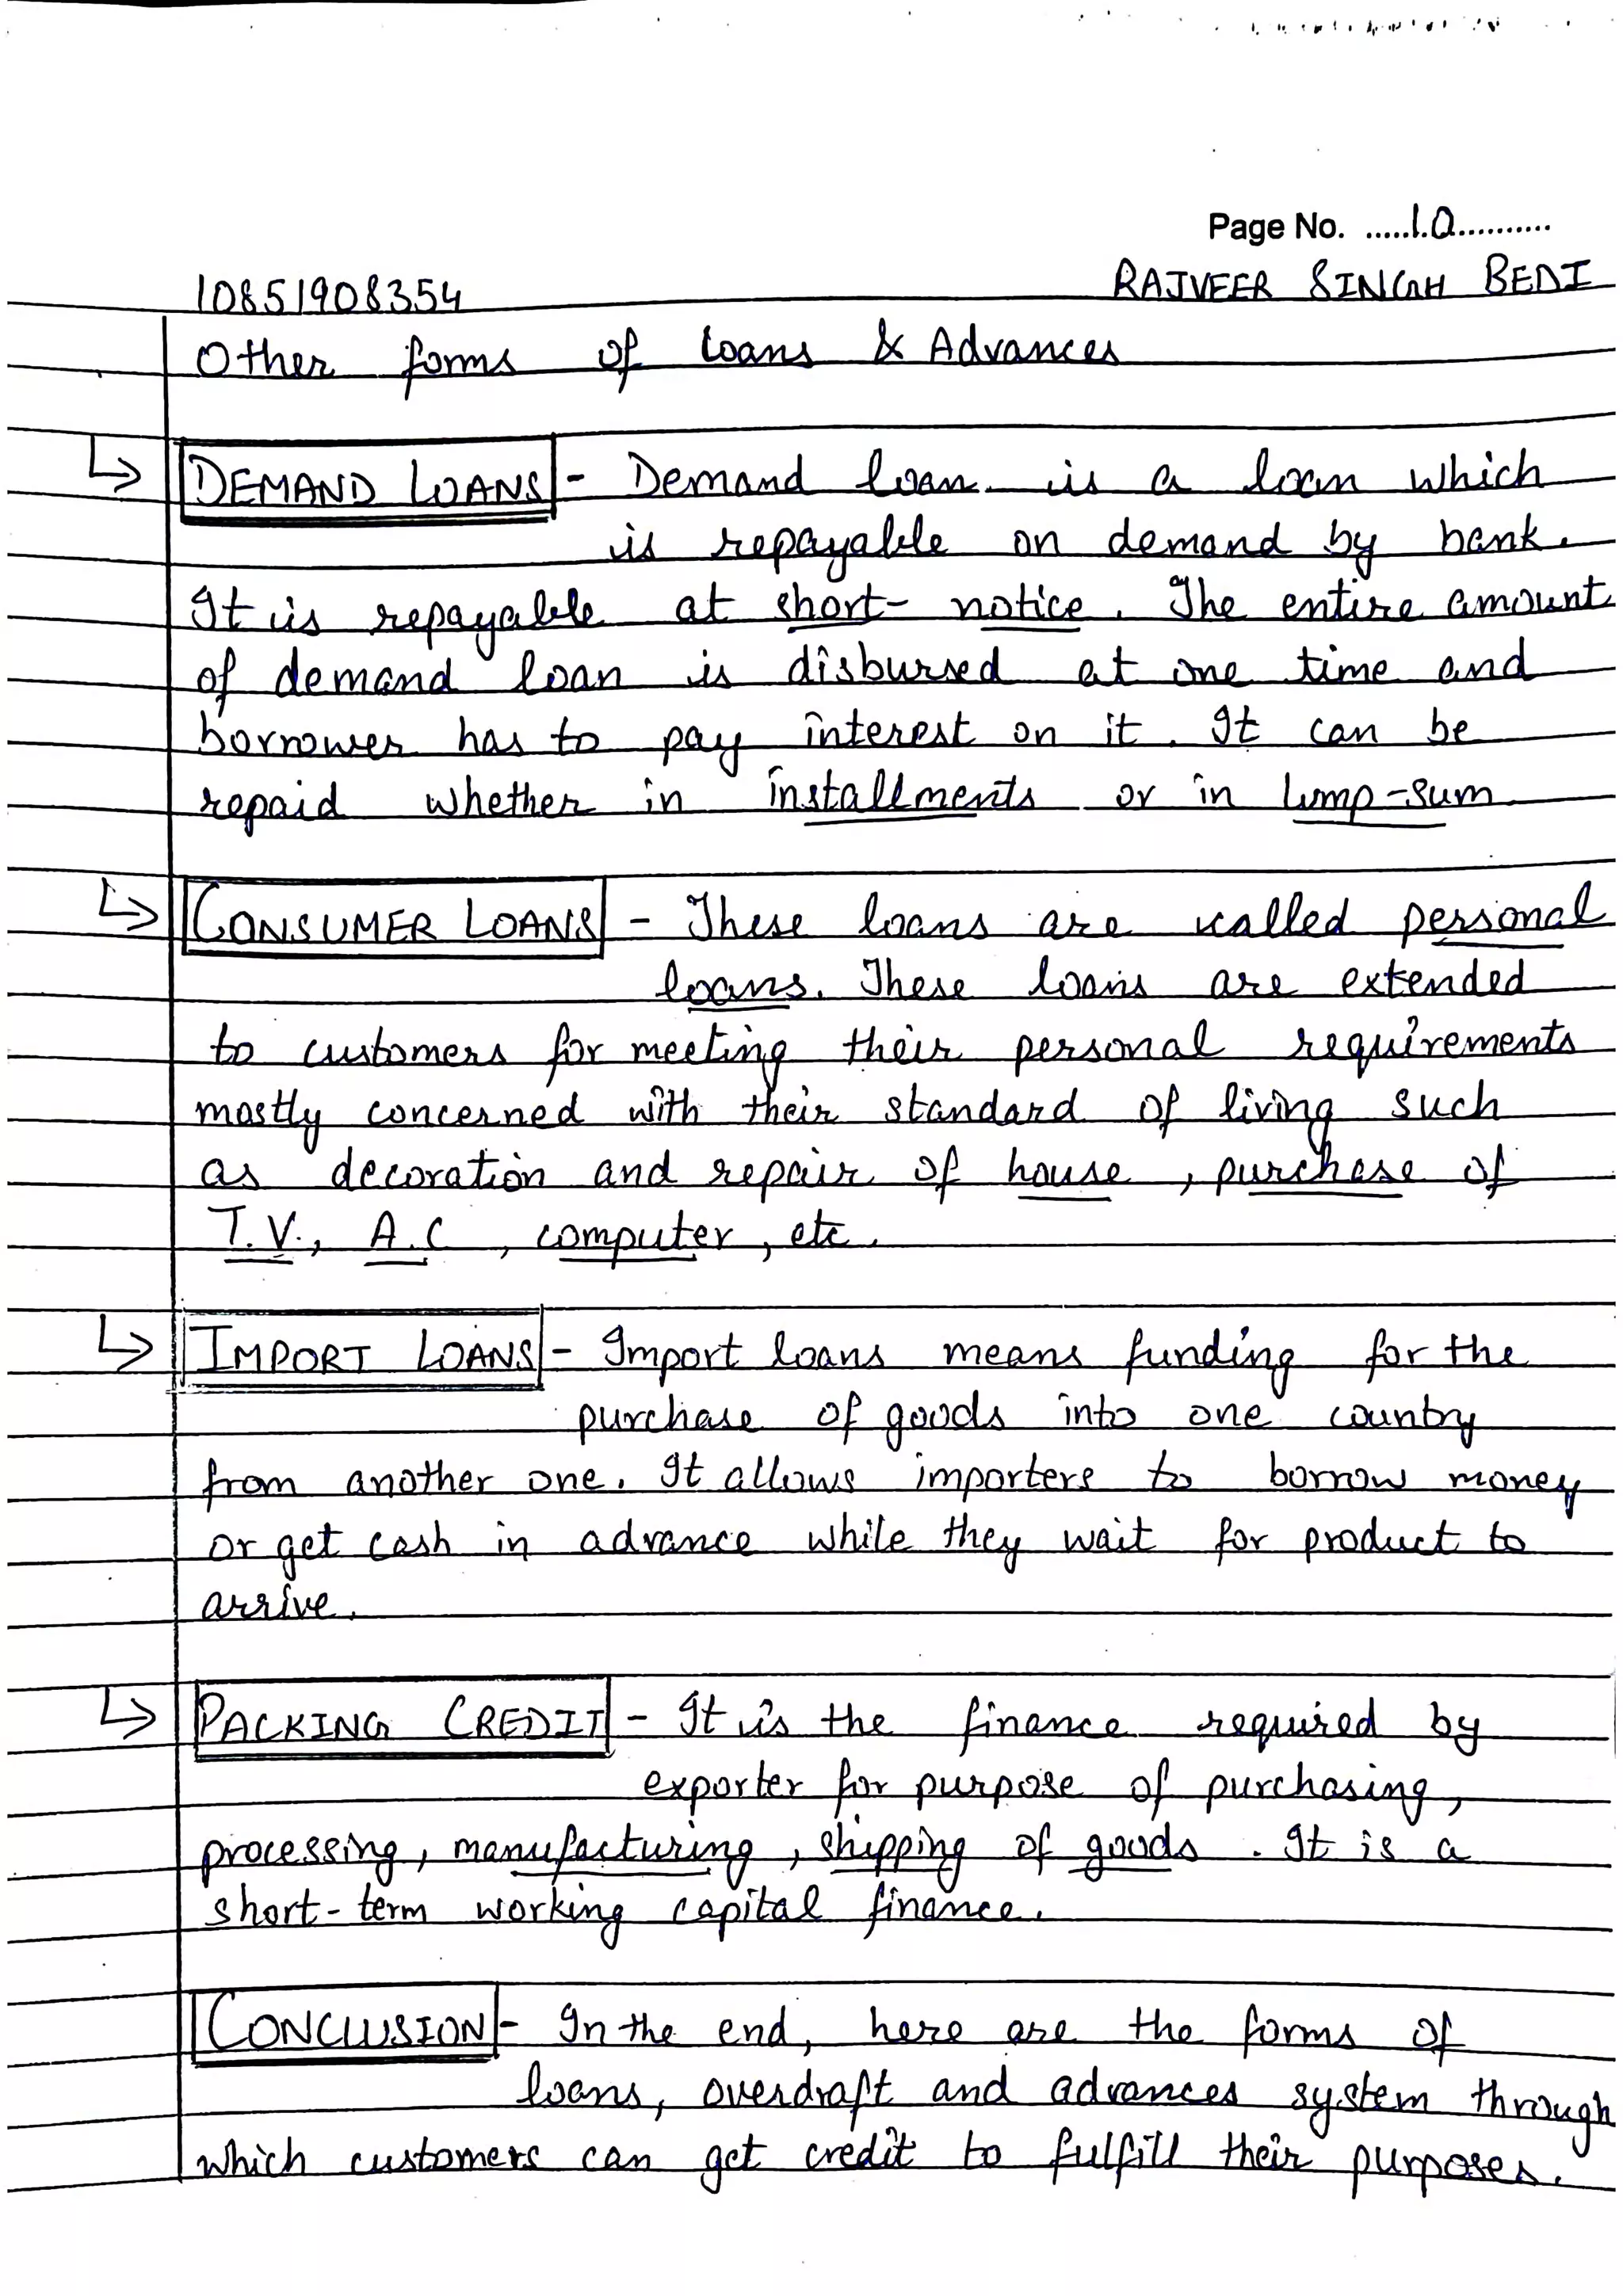 Page No. .....10...........
10851908354 RAJVEER SINGH BEDI
Other forms of Loans & Advances
↳ DEMAND LOANS - Demand loan is a loan which
is repayable on demand by bank.
It is repayable at short-notice. The entire amount
of demand loan is disbursed at one time and
borrower has to pay interest on it. It can be
repaid whether in installments or in lump-sum
↳ CONSUMER LOANS - These loans are called personal
loans. These loans are extended
to customers for meeting their personal requirements
mostly concerned with their standard of living such
as decoration and repair of house, purchase of
T.V., A.C, computer, etc.
↳ IMPORT LOANS - Import loans means funding for the
purchase of goods into one country
from another one. It allows importers to borrow money
or get cash in advance while they wait for product to
arrive.
↳ PACKING CREDIT - It is the finance required by
exporter for purpose of purchasing,
processing, manufacturing, shipping of goods. It is a
short-term working capital finance.
CONCLUSION - In the end, here are the forms of
loans, overdraft and advances system through
which customers can get credit to fulfill their purposes.